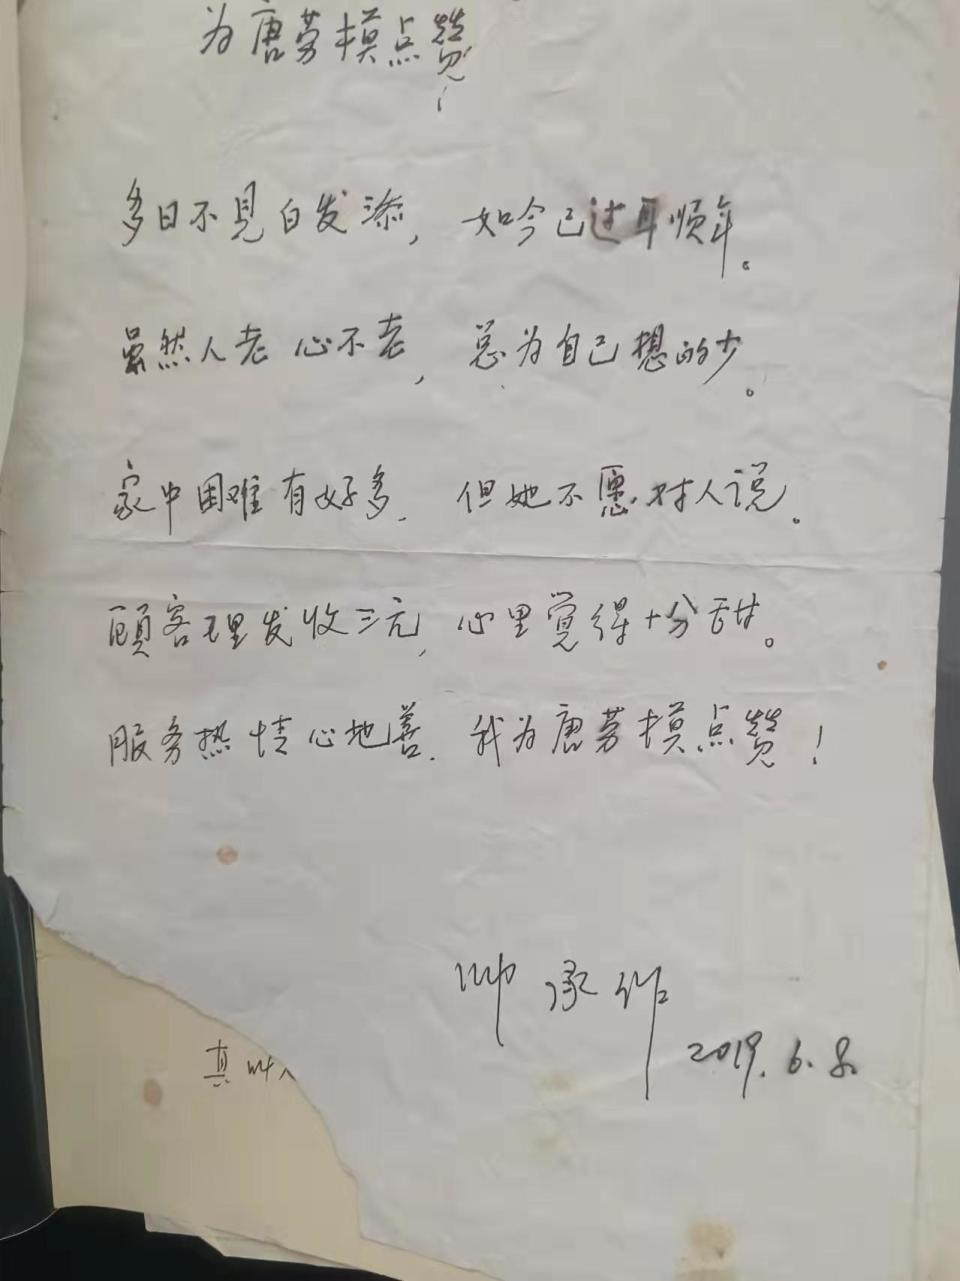 为唐劳模点赞！
多日不见白发添，如今已过耳顺年。
虽然人老心不老，总为自己想的少。
家中困难有好多．但她不愿对人说。
顾客理发收三元，心里觉得十分甜。
服务热情心地善．我为唐劳模点赞！
帅承作
2019.6.8.
真叫人